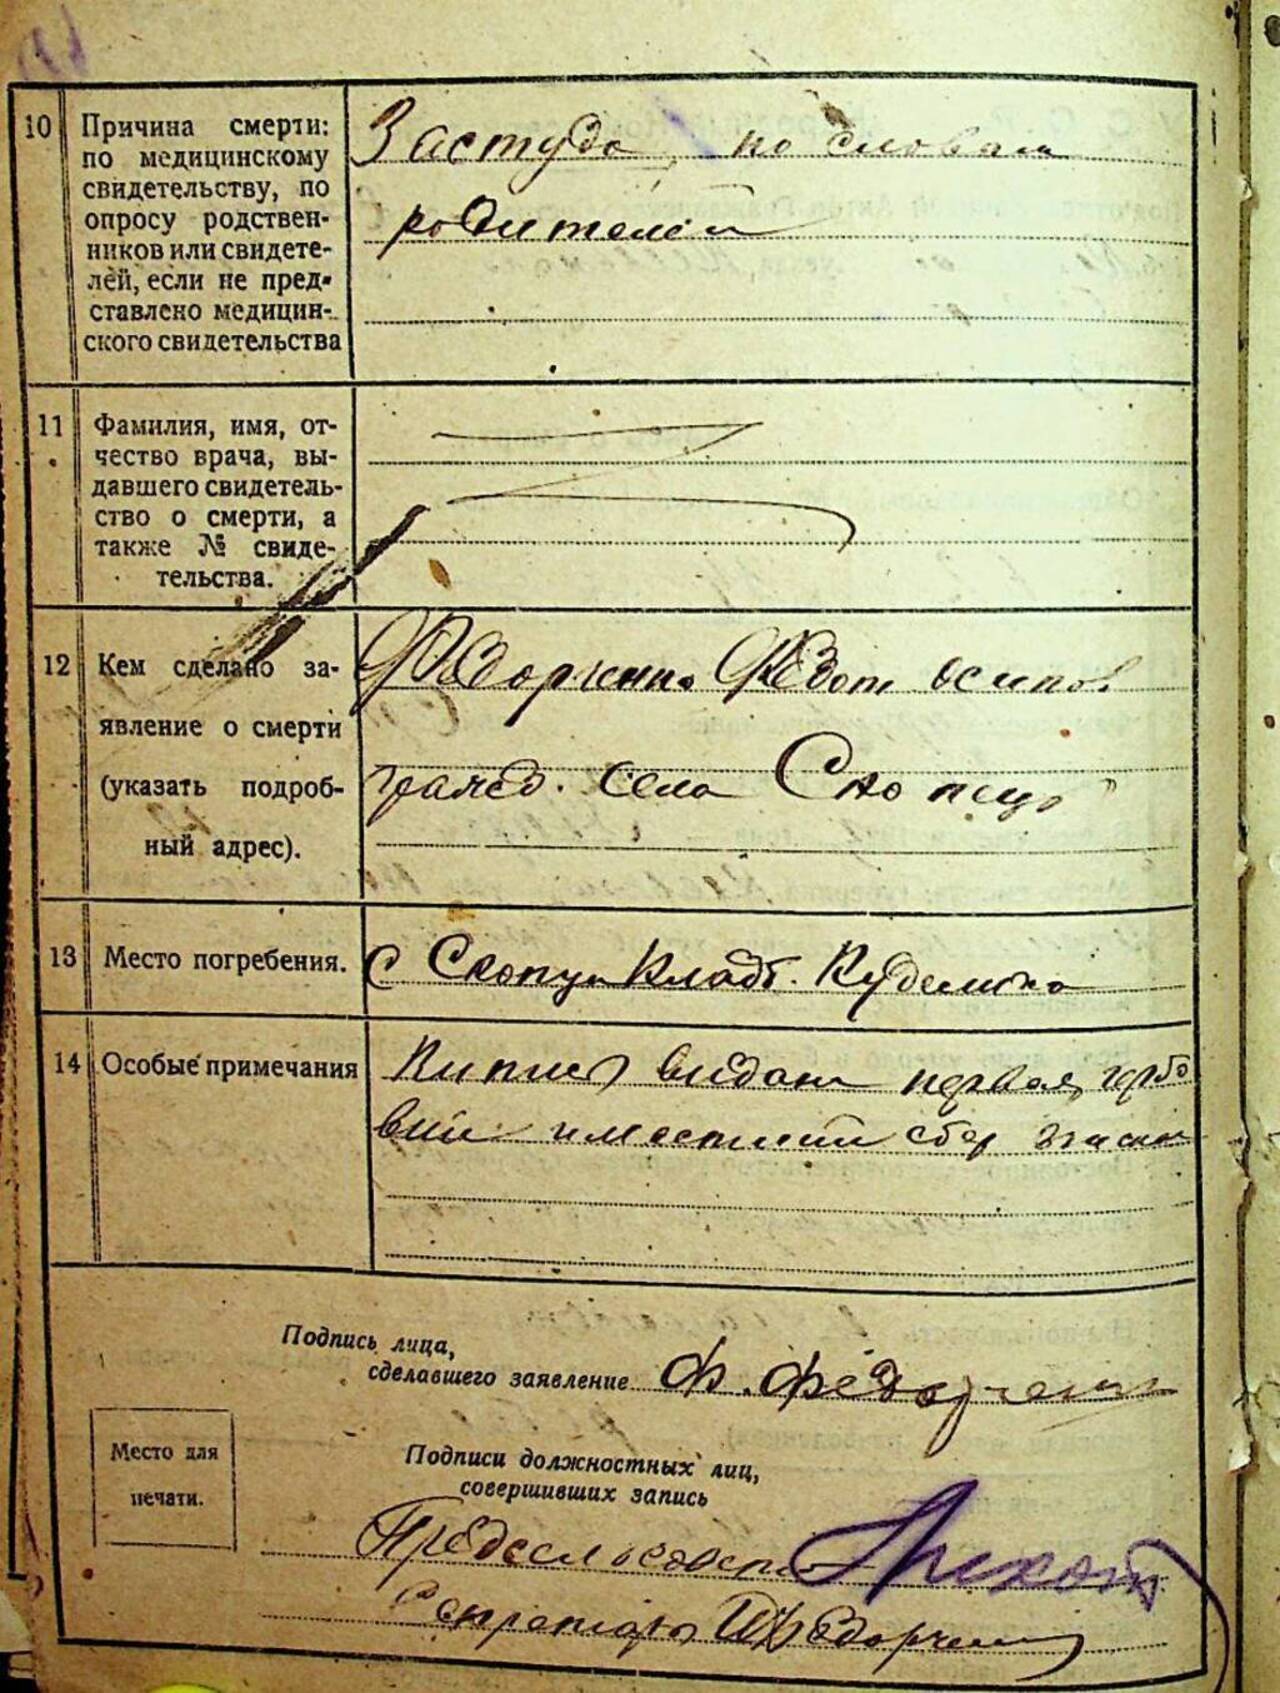 10
Причина смерти:
по медицинскому
свидетельству, по
опросу родствен-
ников или свидете-
лей, если не пред-
ставлено медицин-
ского свидетельства
Застуда, по словам
родителей
11
Фамилия, имя, от-
чество врача, вы-
давшего свидетель-
ство о смерти, а
также № свиде-
тельства.
12
Кем сделано за-
явление о смерти
(указать подроб-
ный адрес).
Федорченко Федот Осипов
гражд. села Скопцы
13
Место погребения.
с Скопцы Кладб.
14
Особые примечания
видана первая, гербо
вий и местний сбор
Подпись лица,
сделавшего заявление Ф. Федорченко
Место для
печати.
Подписи должностных лиц,
совершивших запись
Предсельсовета
Секретарь Федорченко